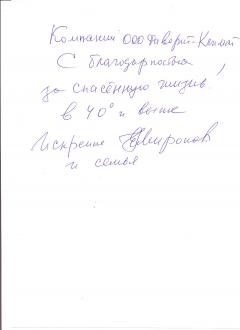 Компании ООО Фаворит-Климат
С благодарностью
за спасённую жизнь,
в 40° и выше
Искренне Миронов
и семья